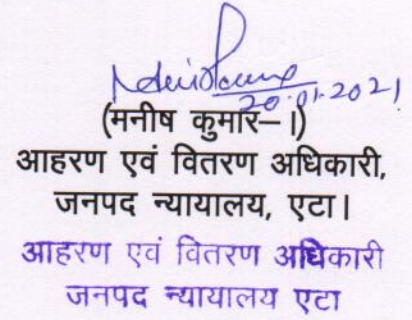 20.01.2021
(मनीष कुमार–।)
आहरण एवं वितरण अधिकारी,
जनपद न्यायालय, एटा।
आहरण एवं वितरण अधिकारी
जनपद न्यायालय एटा